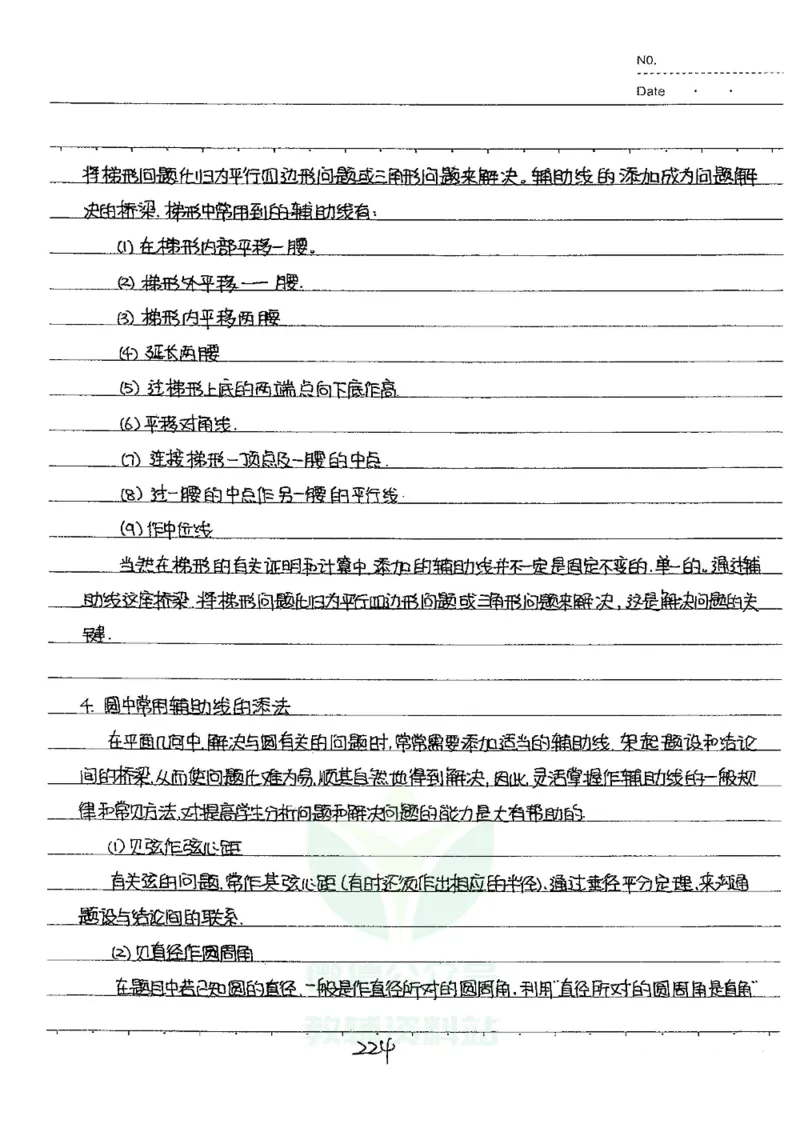 NO.
Date · ·
将梯形问题化归为平行四边形问题或三角形问题来解决。辅助线的添加成为问题解
决的桥梁.梯形中常用到的辅助线有:
(1)在梯形内部平移一腰。
(2)梯形外平移一腰.
(3)梯形内平移两腰
(4)延长两腰
(5)过梯形上底的两端点向下底作高.
(6)平移对角线.
(7)连接梯形一顶点及一腰的中点.
(8)过一腰的中点作另一腰的平行线.
(9)作中位线
当然在梯形的有关证明和计算中.添加的辅助线并不一定是固定不变的.单一的。通过辅
助线这座桥梁.将梯形问题化归为平行四边形问题或三角形问题来解决,这是解决问题的关
键.
4.圆中常用辅助线的添法
在平面几何中,解决与圆有关的问题时,常常需要添加适当的辅助线.架起题设和结论
间的桥梁,从而使问题化难为易,顺其自然地得到解决,因此,灵活掌握作辅助线的一般规
律和常见方法,对提高学生分析问题和解决问题的能力是大有帮助的.
(1)见弦作弦心距
有关弦的问题,常作其弦心距(有时还须作出相应的半径),通过垂径平分定理,来沟通
题设与结论间的联系.
(2)见直径作圆周角
在题目中若已知圆的直径,一般是作直径所对的圆周角,利用"直径所对的圆周角是直角"
微信公众号
教辅资料站
224